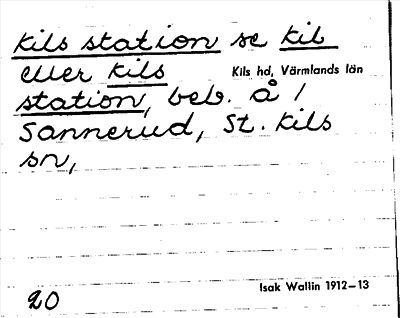 Kils station se Kil
eller Kils
Kils hd, Värmlands län
station, beb. å 1
Sannerud, St. Kils
sn,
Isak Wallin 1912–13
20